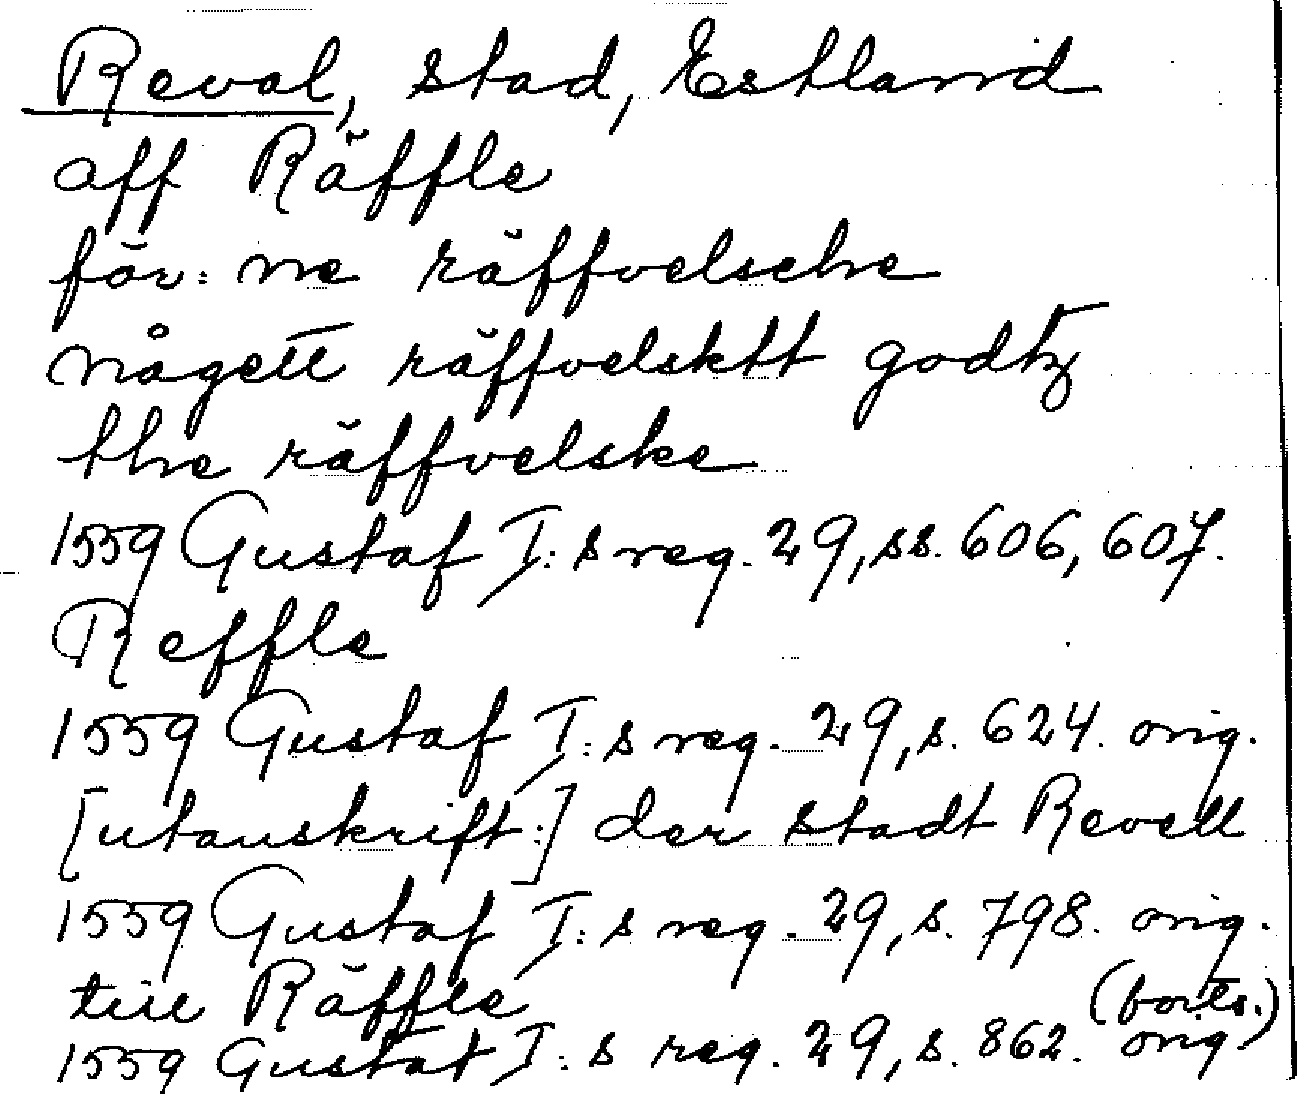 Reval, stad, Estland
aff Räffle
för: ne räffvelsche
någett räffvelsktt godtz
the räffvelske
1559 Gustaf I: s reg. 29, ss. 606, 607.
Reffle
1559 Gustaf I: s reg. 29, s. 624. orig.
[utanskrift:] der stadt Revell
1559 Gustaf I: s reg. 29, s. 798. orig.
till Räffle
1559 Gustaf I: s reg. 29, s. 862. orig
(forts.)